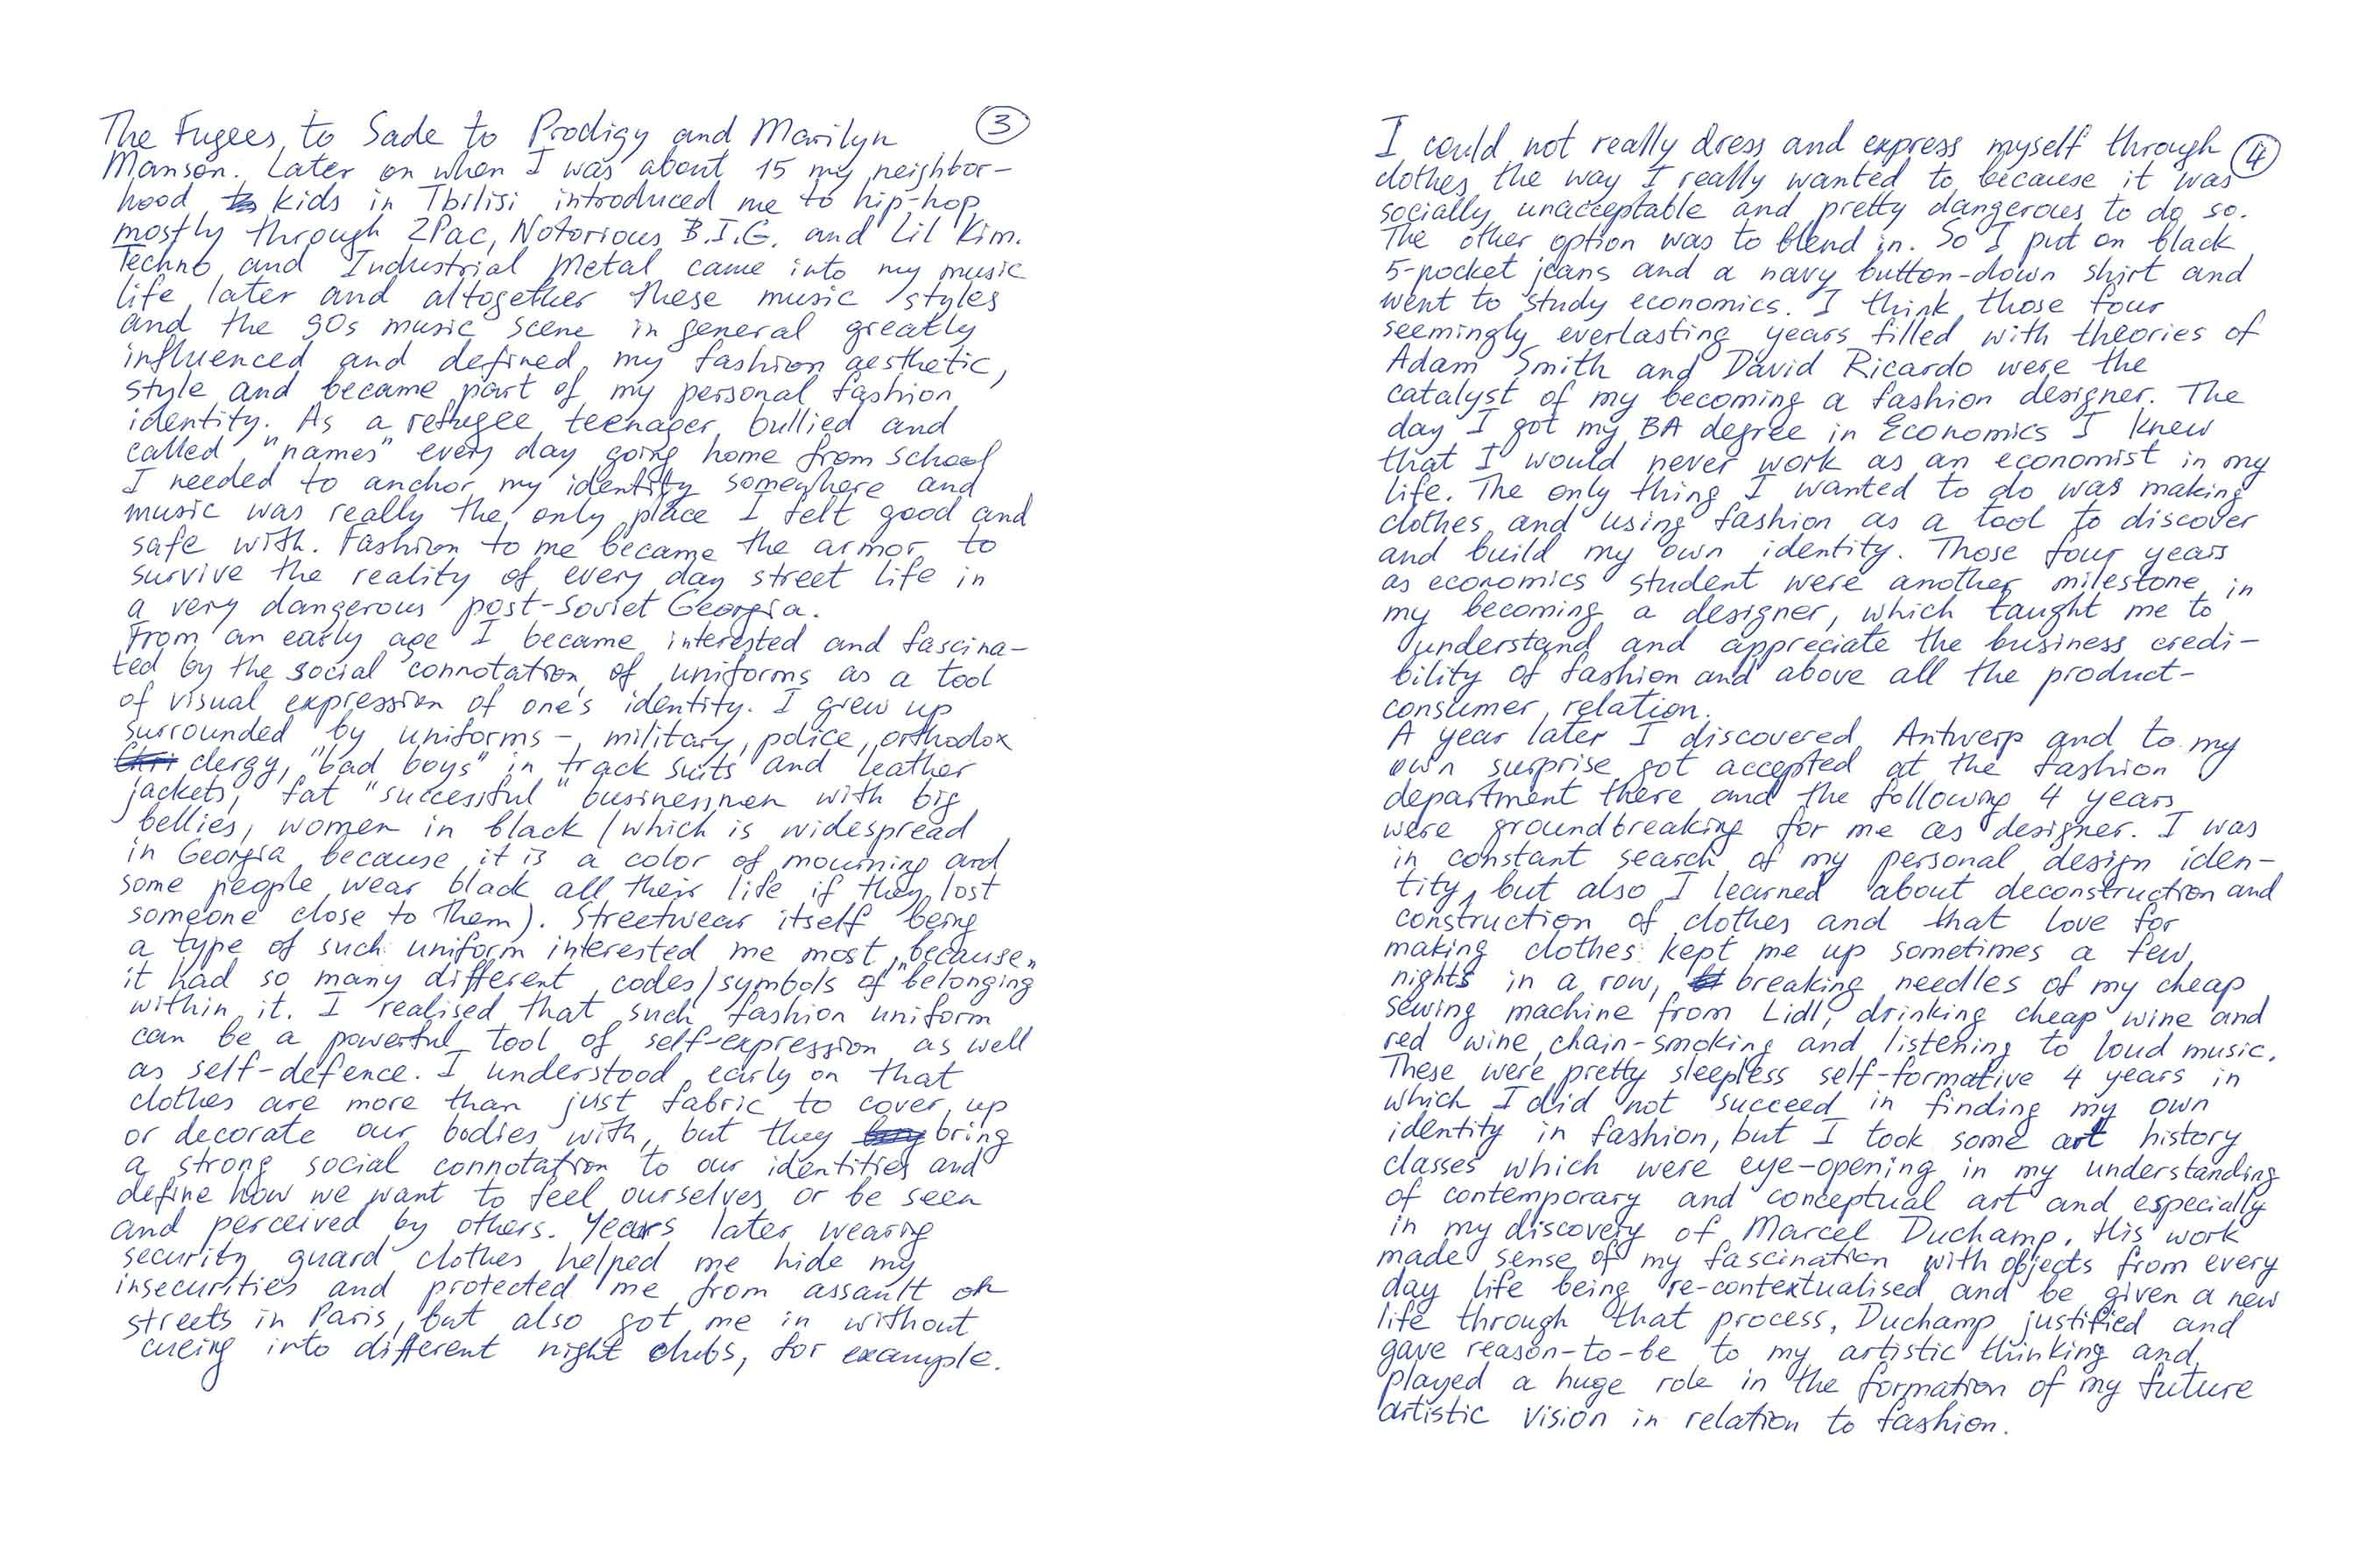 The Fugees, to Sade to Prodigy and Marilyn
③
Manson. Later on when I was about 15 my neighbor-
hood kids in Tbilisi introduced me to hip-hop
mostly through 2Pac, Notorious B.I.G. and Lil Kim.
Techno and Industrial Metal came into my music
life later and altogether these music styles
and the 90s music scene in general greatly
influenced and defined my fashion aesthetic,
style and became part of my personal fashion
identity. As a refugee teenager bullied and
called "names" every day going home from school
I needed to anchor my identity somewhere and
music was really the only place I felt good and
safe with. Fashion to me became the armor to
survive the reality of every day street life in
a very dangerous post-Soviet Georgia.
From an early age I became interested and fascina-
ted by the social connotation of uniforms as a tool
of visual expression of one's identity. I grew up
surrounded by uniforms - military, police, orthodox
clergy, "bad boys" in track suits and leather
jackets, fat "successful" businessmen with big
bellies, women in black (which is widespread
in Georgia because it is a color of mourning and
some people wear black all their life if they lost
someone close to them). Streetwear itself being
a type of such uniform interested me most, because
it had so many different codes/symbols of "belonging"
within it. I realised that such fashion uniform
can be a powerful tool of self-expression as well
as self-defence. I understood early on that
clothes are more than just fabric to cover up
or decorate our bodies with, but they bring
a strong social connotation to our identities and
define how we want to feel ourselves or be seen
and perceived by others. Years later wearing
security guard clothes helped me hide my
insecurities and protected me from assault on
streets in Paris, but also got me in without
cueing into different night clubs, for example.
I could not really dress and express myself through
④
clothes the way I really wanted to because it was
socially unacceptable and pretty dangerous to do so.
The other option was to blend in. So I put on black
5-pocket jeans and a navy button-down shirt and
went to study economics. I think those four
seemingly everlasting years filled with theories of
Adam Smith and David Ricardo were the
catalyst of my becoming a fashion designer. The
day I got my BA degree in Economics I knew
that I would never work as an economist in my
life. The only thing I wanted to do was making
clothes and using fashion as a tool to discover
and build my own identity. Those four years
as economics student were another milestone in
my becoming a designer, which taught me to
understand and appreciate the business credi-
bility of fashion and above all the product-
consumer relation.
A year later I discovered Antwerp and to my
own surprise got accepted at the fashion
department there and the following 4 years
were groundbreaking for me as designer. I was
in constant search of my personal design iden-
tity, but also I learned about deconstruction and
construction of clothes and that love for
making clothes kept me up sometimes a few
nights in a row, breaking needles of my cheap
sewing machine from Lidl, drinking cheap wine and
red wine, chain-smoking and listening to loud music.
These were pretty sleepless self-formative 4 years in
which I did not succeed in finding my own
identity in fashion, but I took some art history
classes which were eye-opening in my understanding
of contemporary and conceptual art and especially
in my discovery of Marcel Duchamp. His work
made sense of my fascination with objects from every
day life being re-contextualised and be given a new
life through that process. Duchamp justified and
gave reason-to-be to my artistic thinking and
played a huge role in the formation of my future
artistic vision in relation to fashion.